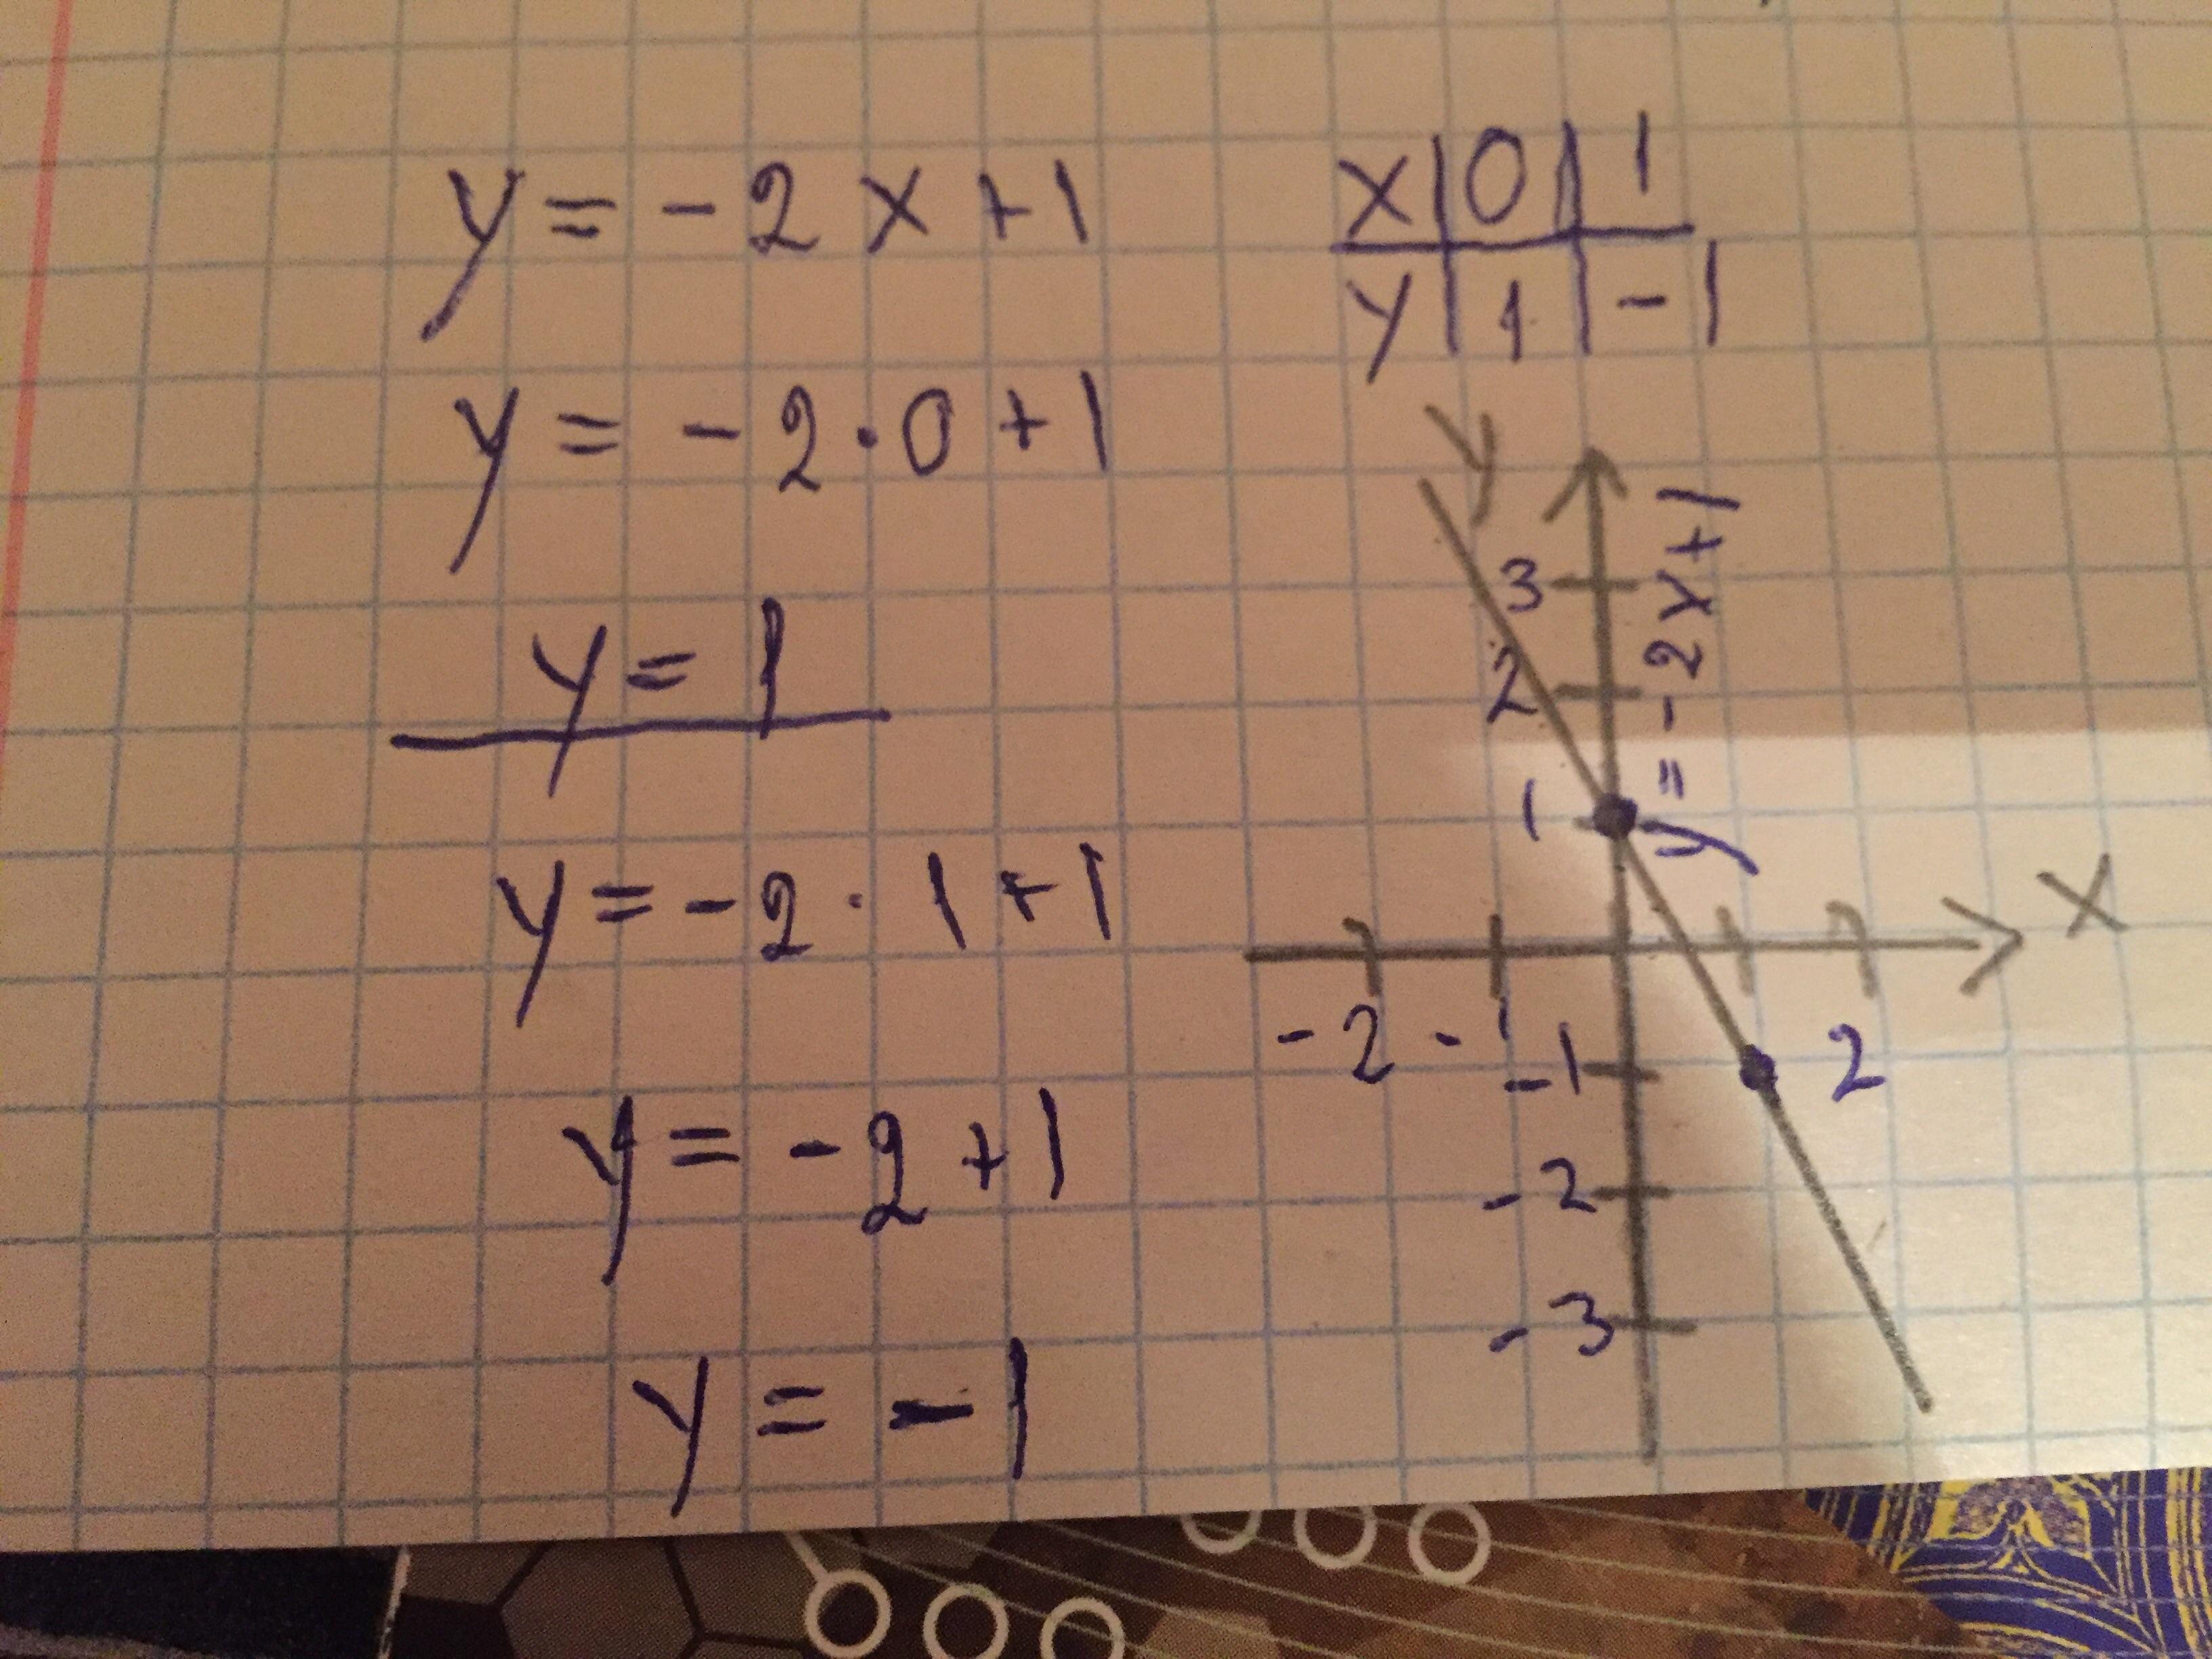 y = -2x+1
y = -2·0+1
y = 1
y = -2·1+1
y = -2+1
y = -1
x | 0 | 1
y | 1 | -1
y
3
2
1
y = -2x+1
x
-2 -1 2
-1
-2
-3